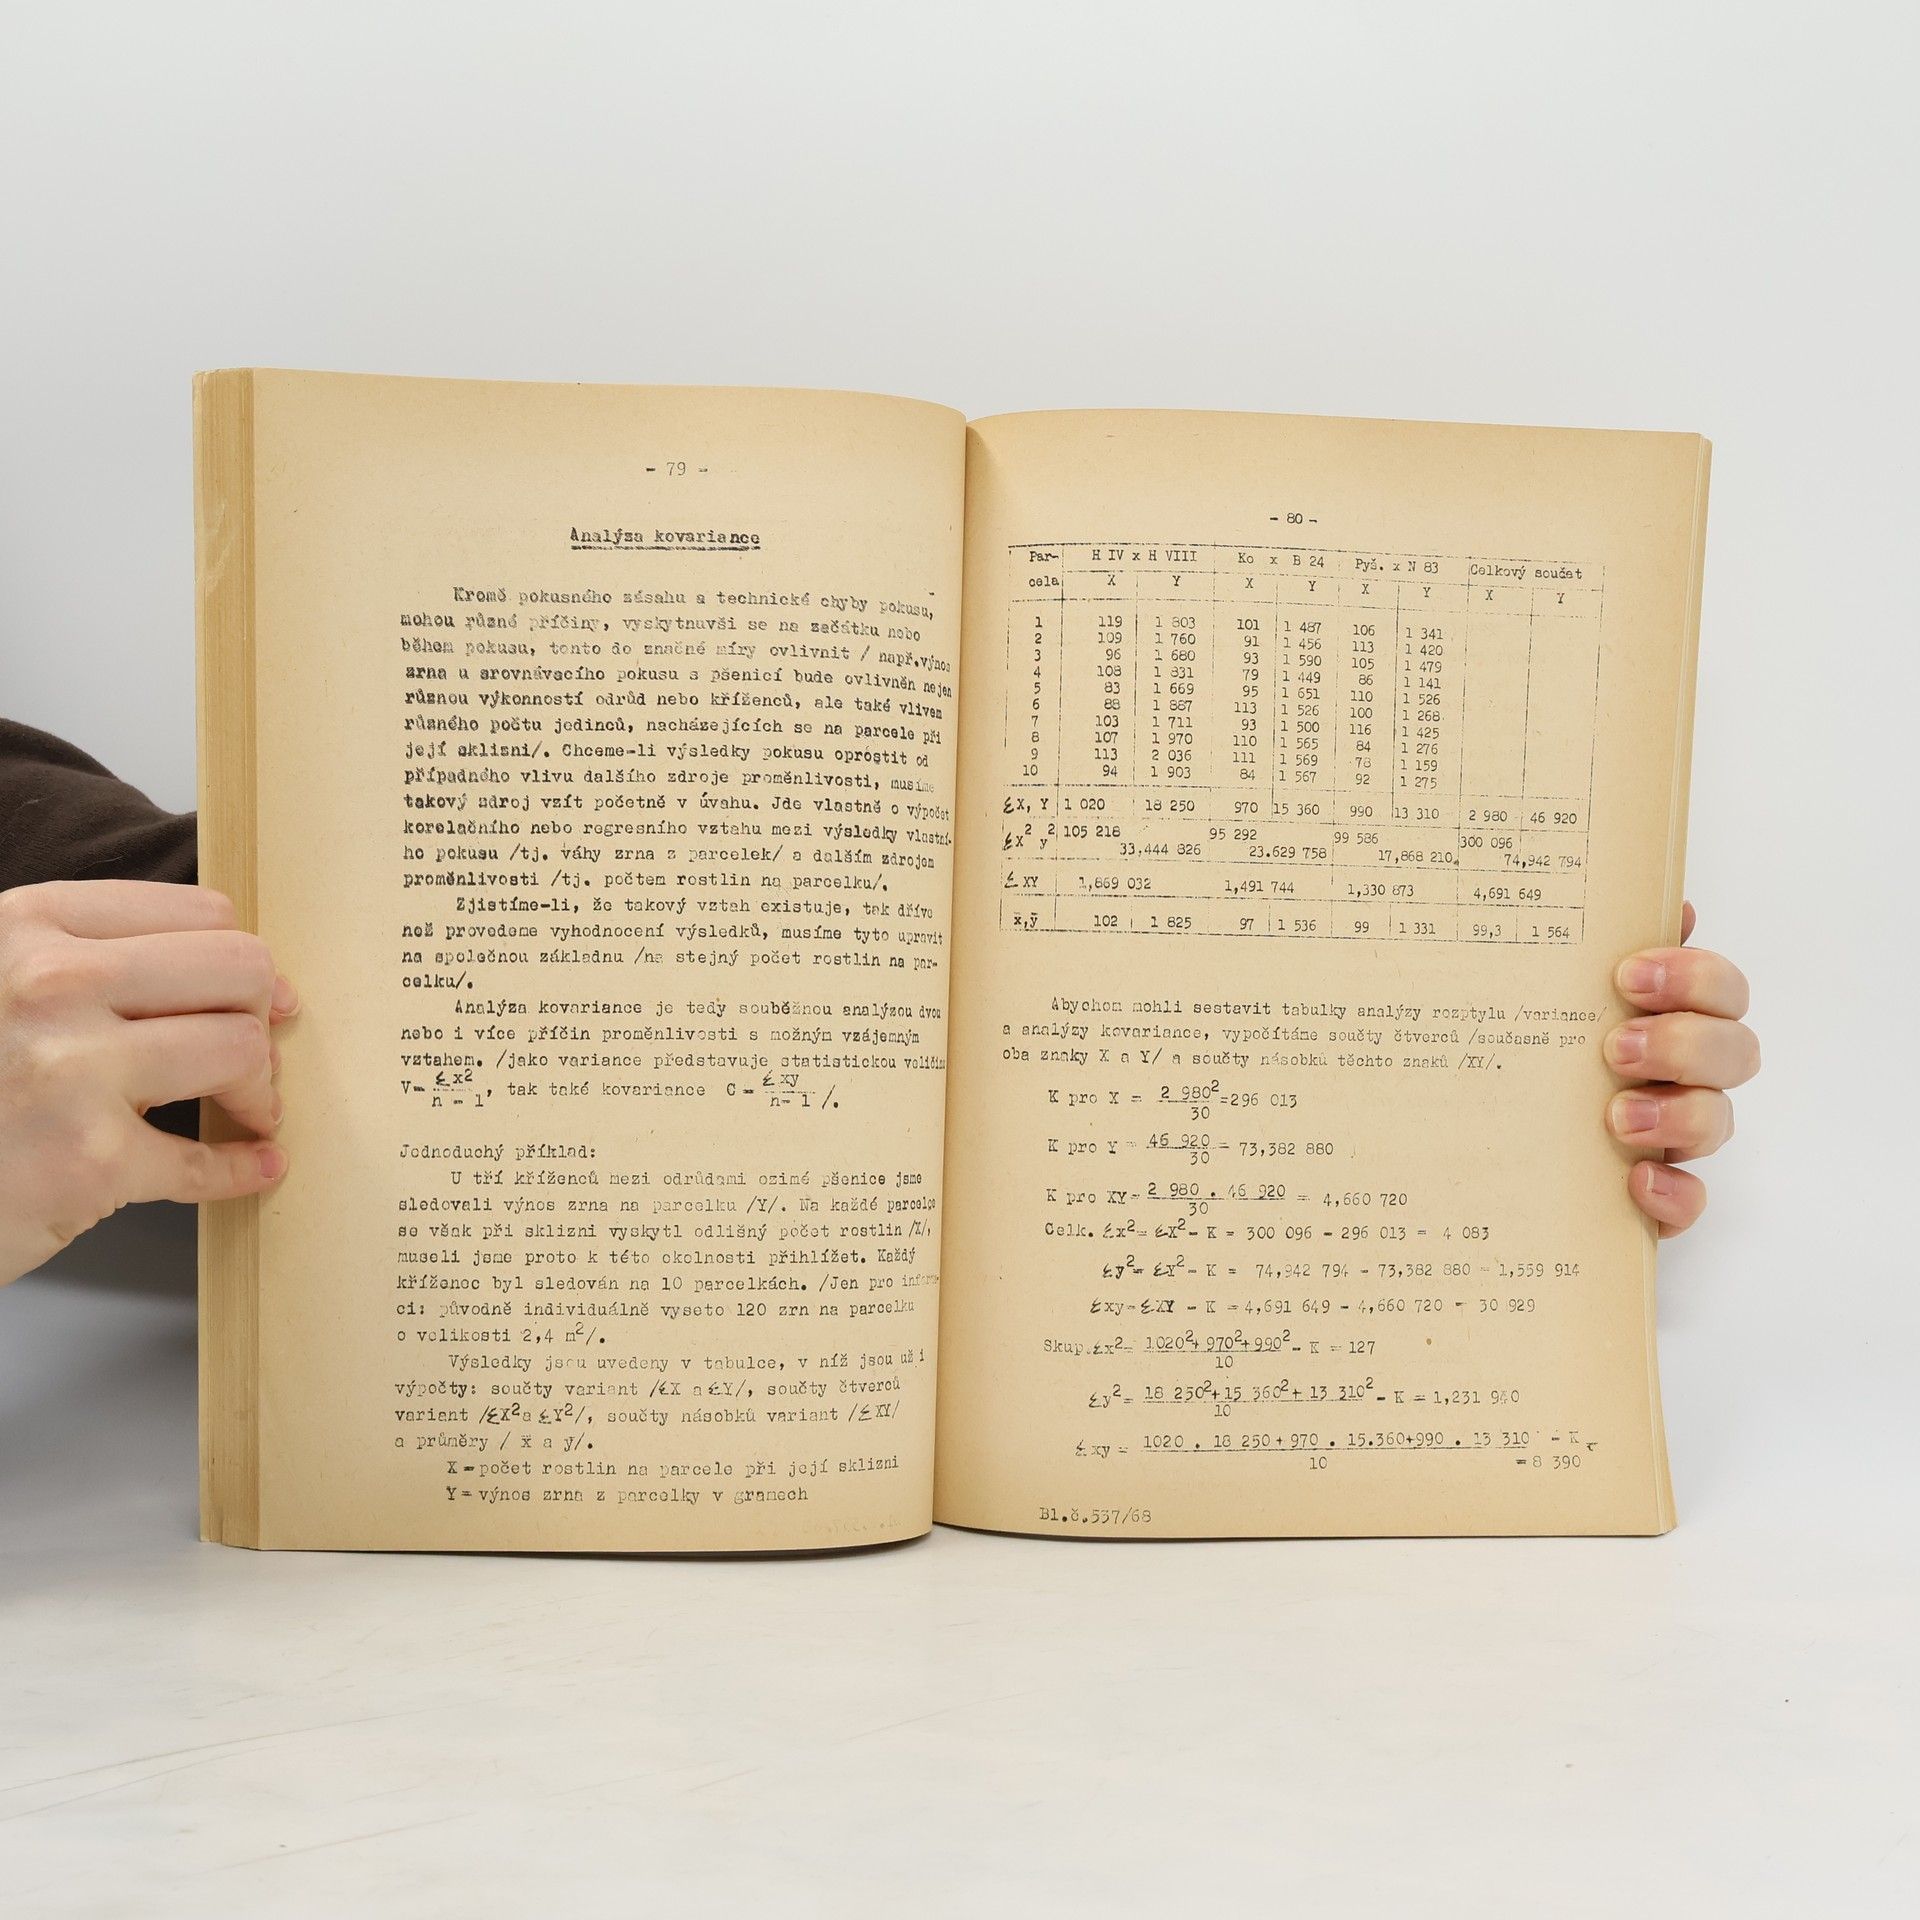 - 79 -
Analýza kovariance
Kromě pokusného zásahu a technické chyby pokusu,
mohou různé příčiny, vyskytnuvší se na začátku nebo
během pokusu, tento do značné míry ovlivnit / např.výnos
zrna u srovnávacího pokusu s pšenicí bude ovlivněn nejen
různou výkonností odrůd nebo kříženců, ale také vlivem
různého počtu jedinců, nacházejících se na parcele při
její sklizni/. Chceme-li výsledky pokusu oprostit od
případného vlivu dalšího zdroje proměnlivosti, musíme
takový zdroj vzít početně v úvahu. Jde vlastně o výpočet
korelačního nebo regresního vztahu mezi výsledky vlastní-
ho pokusu /tj. váhy zrna z parcelek/ a dalším zdrojem
proměnlivosti /tj. počtem rostlin na parcelku/.
Zjistíme-li, že takový vztah existuje, tak dříve
než provedeme vyhodnocení výsledků, musíme tyto upravit
na společnou základnu /na stejný počet rostlin na par-
celku/.
Analýza kovariance je tedy souběžnou analýzou dvou
nebo i více příčin proměnlivosti s možným vzájemným
vztahem. /jako variance představuje statistickou veličinu
V= Σx2 / n - 1, tak také kovariance C= Σxy / n- 1 /.
Jednoduchý příklad:
U tří kříženců mezi odrůdami ozimé pšenice jsme
sledovali výnos zrna na parcelku /Y/. Na každé parcelce
se však při sklizni vyskytl odlišný počet rostlin /X/,
museli jsme proto k této okolnosti přihlížet. Každý
kříženec byl sledován na 10 parcelkách. /Jen pro informa-
ci: původně individuálně vyseto 120 zrn na parcelku
o velikosti 2,4 m2/.
Výsledky jsou uvedeny v tabulce, v níž jsou už i
výpočty: součty variant /ΣX a ΣY/, součty čtverců
variant /ΣX2a ΣY2/, součty násobků variant /ΣXY/
a průměry / x̄ a ȳ/.
X=počet rostlin na parcele při její sklizni
Y=výnos zrna z parcelky v gramech
- 80 -
Par-cela H IV x H VIII Ko x B 24 Pyš. x N 83 Celkový součet
X Y X Y X Y X Y
1 119 1 803 101 1 487 106 1 341
2 109 1 760 91 1 456 113 1 420
3 96 1 680 93 1 590 105 1 479
4 108 1 831 79 1 449 86 1 141
5 83 1 669 95 1 651 110 1 526
6 88 1 887 113 1 526 100 1 268
7 103 1 711 93 1 500 116 1 425
8 107 1 970 110 1 565 84 1 276
9 113 2 036 111 1 569 78 1 159
10 94 1 903 84 1 567 92 1 275
ΣX, Y 1 020 18 250 970 15 360 990 13 310 2 980 46 920
Σx2 y2 105 218 33,444 826 95 292 23.629 758 99 586 17,868 210 300 096 74,942 794
ΣXY 1,869 032 1,491 744 1,330 873 4,691 649
x̄,ȳ 102 1 825 97 1 536 99 1 331 99,3 1 564
Abychom mohli sestavit tabulky analýzy rozptylu /variance/
a analýzy kovariance, vypočítáme součty čtverců /současně pro
oba znaky X a Y/ a součty násobků těchto znaků /XY/.
K pro X = 2 980² / 30 =296 013
K pro Y = 46 920 / 30 = 73,382 880
K pro XY= 2 980 . 46 920 / 30 = 4,660 720
Celk. Σx2= ΣX2- K = 300 096 - 296 013 = 4 083
Σy2= ΣY2- K = 74,942 794 - 73,382 880 = 1,559 914
Σxy=ΣXY - K =4,691 649 - 4,660 720 = 30 929
Skup.Σx2= 1020²+ 970²+ 990² / 10 - K = 127
Σy2= 18 250²+15 360²+ 13 310² / 10 - K = 1,231 940
Σxy = 1020 . 18 250 + 970 . 15.360+990 . 13 310 / 10 - K =
= 8 390
Bl.č.537/68